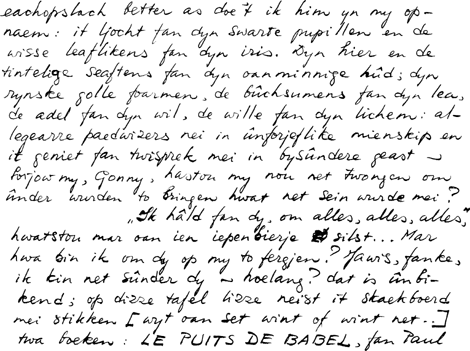 eachopslach better as doe't ik him yn my op-
naem: it ljocht fan dyn swarte pupillen en de
wisse leaflikens fan dyn iris. Dyn hier en de
tintelige seaftens fan dyn oanminnige hûd; dyn
rynske golle foarmen, de bûchsumens fan dyn lea,
de adel fan dyn wil, de wille fan dyn lichem: al-
legearre paedwizers nei in ûnforjeflike mienskip en
it geniet fan twisprek mei in bysûndere geast –
Forjow my, Gonny, hastou my nou net twongen om
ûnder wurden to bringen hwat net sein wurde mei?
„Ik hâld fan dy, om alles, alles, alles,"
hwatstou mar oan ien iepenbierje silst... Mar
hwa bin ik om dy op my to fergjen? Jawis, fanke,
ik kin net sûnder dy – hoelang? dat is ûnbi-
kend; op dizze tafel lizze neist it skaekboerd
mei stikken [wyt oan set wint of wint net..]
twa boeken: LE PUITS DE BABEL, fan Paul